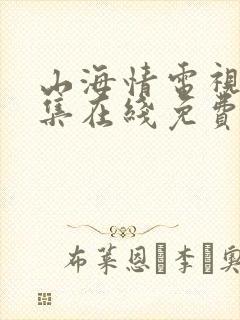 山海情電視
集在綫免費
布萊恩·李·奧